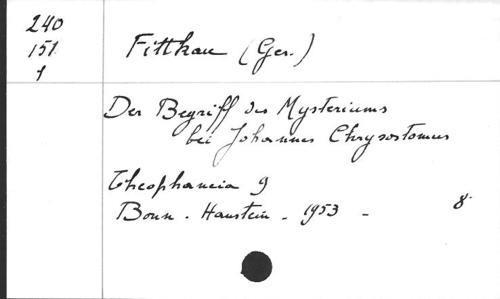 240
151
1
Fittkau (Ger.)
Der Begriff des Mysteriums
bei Johannes Chrysostomus
Theophaneia 9
Bonn. Hanstein. 1953 - 8°